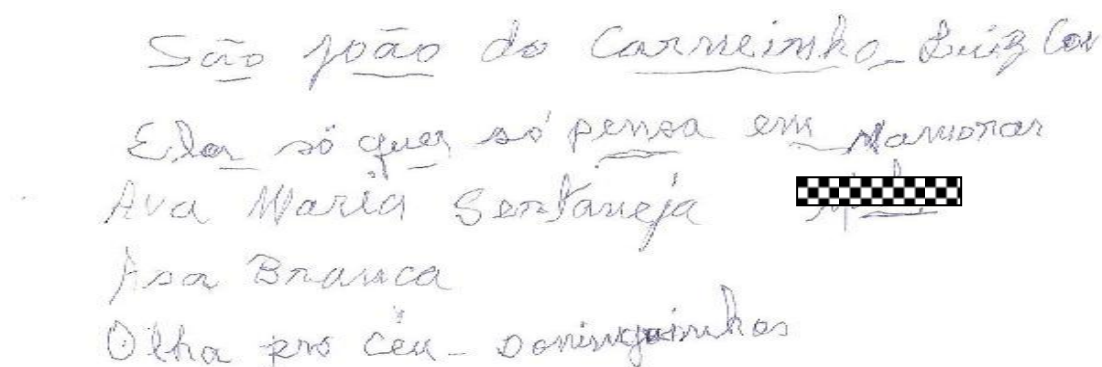 São João do Carneinho_Luiz Con
Ela só quer só pensa em Namorar
Ava Maria Sertaneja
Asa Branca
Olha pro céu - Dominguinhos